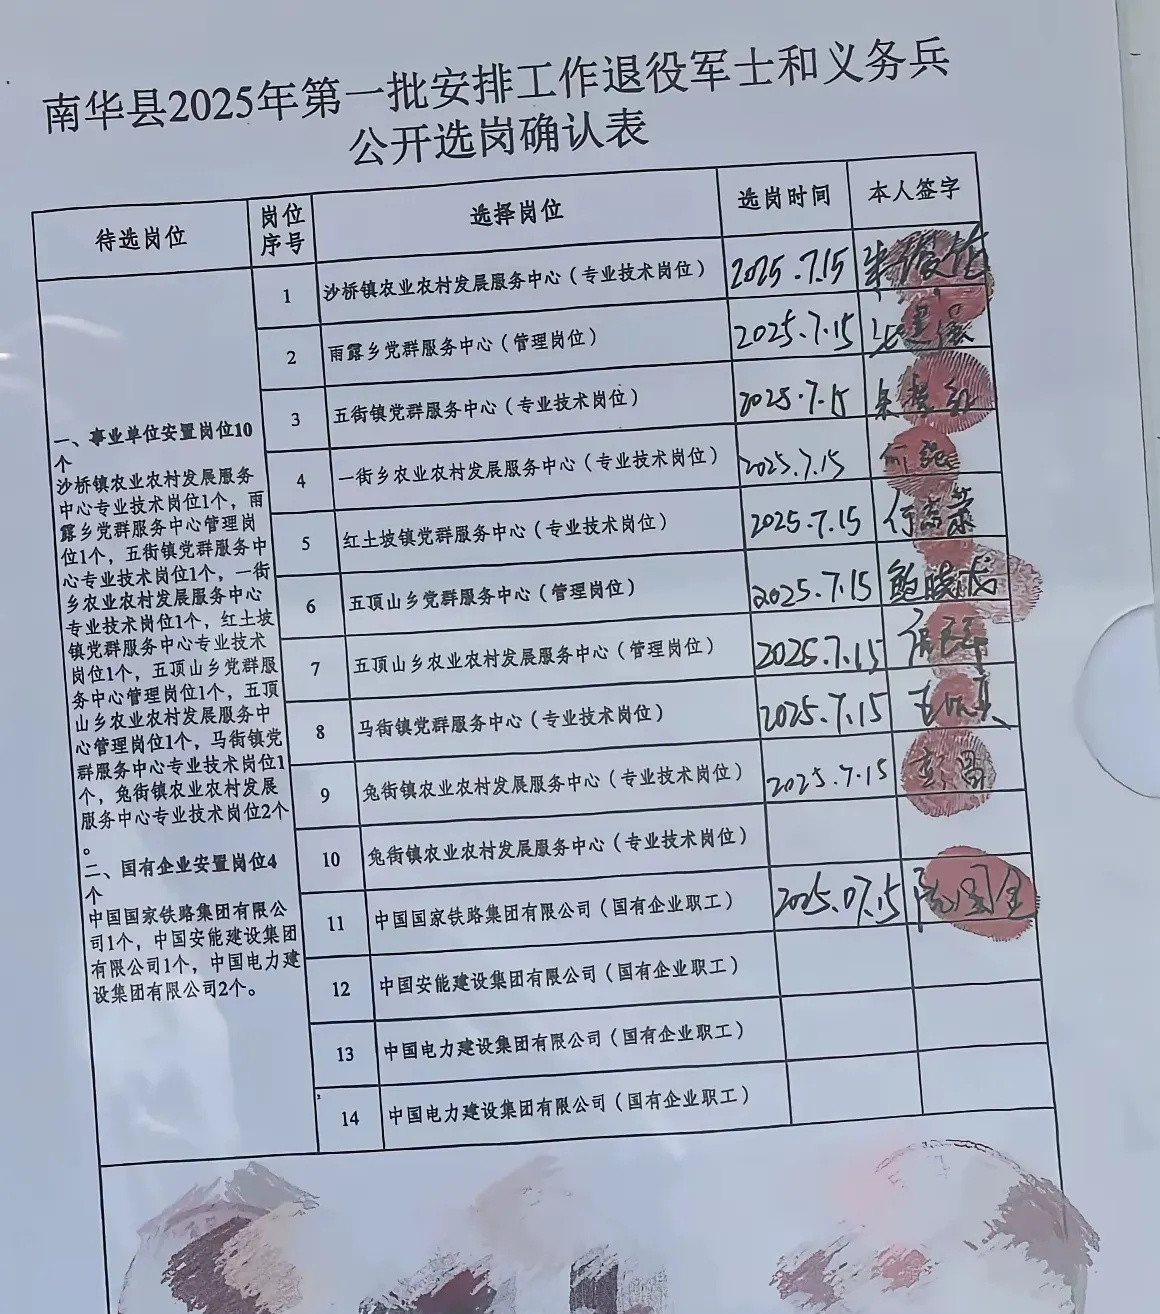 南华县2025年第一批安排工作退役军士和义务兵
公开选岗确认表
待选岗位
岗位
序号
选择岗位
选岗时间
本人签字
一、事业单位安置岗位10
个
沙桥镇农业农村发展服务
中心专业技术岗位1个，雨
露乡党群服务中心管理岗
位1个，五街镇党群服务中
心专业技术岗位1个，一街
乡农业农村发展服务中心
专业技术岗位1个，红土坡
镇党群服务中心专业技术
岗位1个，五顶山乡党群服
务中心管理岗位1个，五顶
山乡农业农村发展服务中
心管理岗位1个，马街镇党
群服务中心专业技术岗位1
个，兔街镇农业农村发展
服务中心专业技术岗位2个
。
二、国有企业安置岗位4
个
中国国家铁路集团有限公
司1个，中国安能建设集团
有限公司1个，中国电力建
设集团有限公司2个。
1 沙桥镇农业农村发展服务中心（专业技术岗位） 2025.7.15
2 雨露乡党群服务中心（管理岗位） 2025.7.15
3 五街镇党群服务中心（专业技术岗位） 2025.7.15
4 一街乡农业农村发展服务中心（专业技术岗位） 2025.7.15
5 红土坡镇党群服务中心（专业技术岗位） 2025.7.15
6 五顶山乡党群服务中心（管理岗位） 2025.7.15
7 五顶山乡农业农村发展服务中心（管理岗位） 2025.7.15
8 马街镇党群服务中心（专业技术岗位） 2025.7.15
9 兔街镇农业农村发展服务中心（专业技术岗位） 2025.7.15
10 兔街镇农业农村发展服务中心（专业技术岗位）
11 中国国家铁路集团有限公司（国有企业职工） 2025.07.15
12 中国安能建设集团有限公司（国有企业职工）
13 中国电力建设集团有限公司（国有企业职工）
14 中国电力建设集团有限公司（国有企业职工）